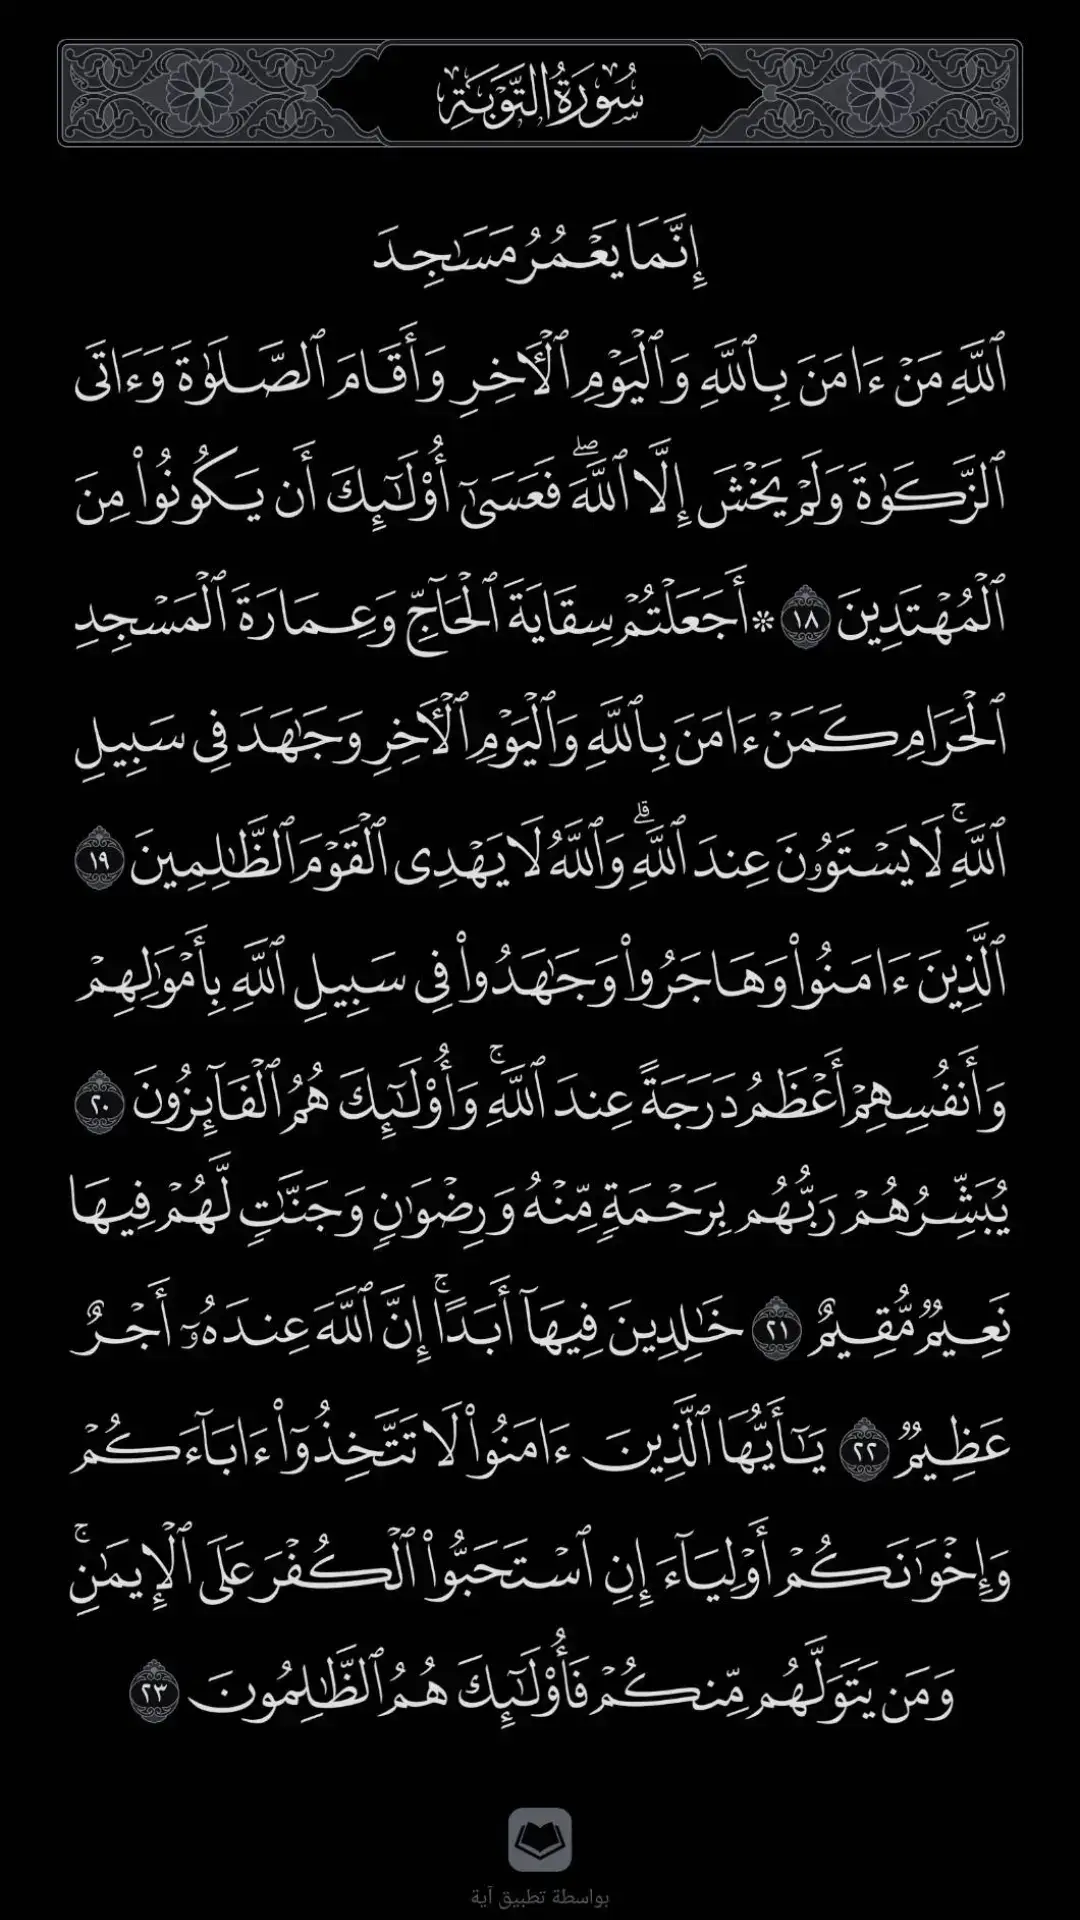 سُورَةُ التَّوۡبَةِ
إِنَّمَا يَعۡمُرُ مَسَٰجِدَ
ٱللَّهِ مَنۡ ءَامَنَ بِٱللَّهِ وَٱلۡيَوۡمِ ٱلۡأٓخِرِ وَأَقَامَ ٱلصَّلَوٰةَ وَءَاتَى
ٱلزَّكَوٰةَ وَلَمۡ يَخۡشَ إِلَّا ٱللَّهَۖ فَعَسَىٰٓ أُوْلَٰٓئِكَ أَن يَكُونُواْ مِنَ
ٱلۡمُهۡتَدِينَ ١٨ ۞أَجَعَلۡتُمۡ سِقَايَةَ ٱلۡحَآجِّ وَعِمَارَةَ ٱلۡمَسۡجِدِ
ٱلۡحَرَامِ كَمَنۡ ءَامَنَ بِٱللَّهِ وَٱلۡيَوۡمِ ٱلۡأٓخِرِ وَجَٰهَدَ فِي سَبِيلِ
ٱللَّهِۚ لَا يَسۡتَوُۥنَ عِندَ ٱللَّهِۗ وَٱللَّهُ لَا يَهۡدِي ٱلۡقَوۡمَ ٱلظَّٰلِمِينَ ١٩
ٱلَّذِينَ ءَامَنُواْ وَهَاجَرُواْ وَجَٰهَدُواْ فِي سَبِيلِ ٱللَّهِ بِأَمۡوَٰلِهِمۡ
وَأَنفُسِهِمۡ أَعۡظَمُ دَرَجَةً عِندَ ٱللَّهِۚ وَأُوْلَٰٓئِكَ هُمُ ٱلۡفَآئِزُونَ ٢٠
يُبَشِّرُهُمۡ رَبُّهُم بِرَحۡمَةٖ مِّنۡهُ وَرِضۡوَٰنٖ وَجَنَّٰتٖ لَّهُمۡ فِيهَا
نَعِيمٞ مُّقِيمٌ ٢١ خَٰلِدِينَ فِيهَآ أَبَدًاۚ إِنَّ ٱللَّهَ عِندَهُۥٓ أَجۡرٌ
عَظِيمٞ ٢٢ يَٰٓأَيُّهَا ٱلَّذِينَ ءَامَنُواْ لَا تَتَّخِذُوٓاْ ءَابَآءَكُمۡ
وَإِخۡوَٰنَكُمۡ أَوۡلِيَآءَ إِنِ ٱسۡتَحَبُّواْ ٱلۡكُفۡرَ عَلَى ٱلۡإِيمَٰنِۚ
وَمَن يَتَوَلَّهُم مِّنكُمۡ فَأُوْلَٰٓئِكَ هُمُ ٱلظَّٰلِمُونَ ٢٣
بواسطة تطبيق آية